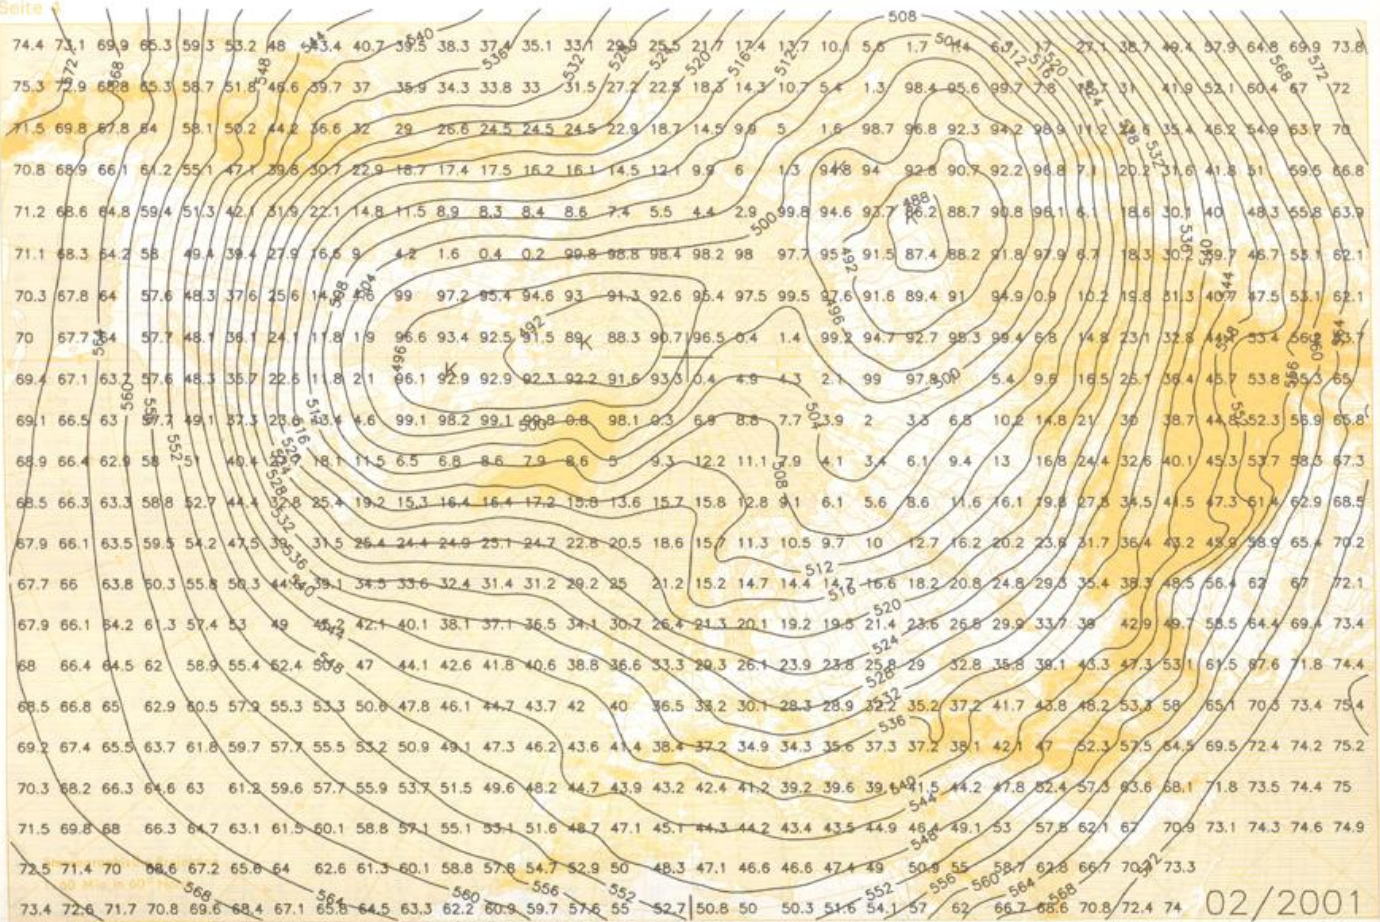 Seite 4
508
74.4 73.1 69.9 65.3 59.3 53.2 48 40.7 39.5 38.3 35.1 33.1 29.9 25.5 21.7 17.4 13.7 10.1 5.6 1.7 27.1 38.7 49.4 57.9 64.8 69.9 73.8
75.3 72.9 68.8 65.3 58.7 51.8 46.6 39.7 37 35.9 34.3 33.8 33 31.5 27.2 22.5 18.3 14.3 10.7 5.4 1.3 98.4 95.6 99.7 7.8 31 41.9 52.1 60.4 67 72
71.5 69.8 67.8 64 58.1 50.2 44.2 36.6 32 29 26.6 24.5 24.5 24.5 22.9 18.7 14.5 9.9 5 1.6 98.7 96.8 92.3 94.2 98.9 11.2 35.4 46.2 54.9 63.7 70
70.8 68.9 66.1 61.2 55.1 47.1 39.8 30.7 22.9 18.7 17.4 17.5 16.2 16.1 14.5 12.1 9.9 6 1.3 94.8 94 92.8 90.7 92.2 96.8 7.1 20.2 31.6 41.8 51 59.5 66.8
71.2 68.6 64.8 59.4 51.3 42.1 31.9 22.1 14.8 11.5 8.9 8.3 8.4 8.6 7.4 5.5 4.4 2.9 99.8 94.6 93.7 86.2 88.7 90.8 96.1 6.1 18.6 30.1 40 48.3 55.8 63.9
71.1 68.3 64.2 58 49.4 39.4 27.9 16.6 9 4.2 1.6 0.4 0.2 99.8 98.8 98.4 98.2 98 97.7 95 91.5 87.4 88.2 91.8 97.9 6.7 18.3 30.2 39.7 46.7 53.1 62.1
70.3 67.8 64 57.6 48.3 37.6 25.6 4.6 99 97.2 95.4 94.6 93 91.3 92.6 95.4 97.5 99.5 97.6 91.6 89.4 91 94.9 0.9 10.2 19.8 31.3 40.7 47.5 53.1 62.1
70 67.7 64 57.7 48.1 36.1 24.1 11.8 1.9 96.6 93.4 92.5 91.5 89 88.3 90.7 96.5 0.4 1.4 99.2 94.7 92.7 95.3 99.4 6.8 14.8 23.1 32.8 53.4
69.4 67.1 63.7 57.6 48.3 35.7 22.6 11.8 2.1 96.1 92.9 92.9 92.3 92.2 91.6 93.3 0.4 4.9 4.3 2.1 99 97.8 5.4 9.6 16.5 25.1 36.4 45.7 53.8 65
69.1 66.5 63 57.7 49.1 37.3 4.6 99.1 98.2 99.1 99.8 0.8 98.1 0.3 6.9 8.8 7.7 3.9 2 3.3 6.8 10.2 14.8 21 30 38.7 44.8 52.3 56.9 65.8
68.9 66.4 62.9 58 51 40.4 18.1 11.5 6.5 6.8 8.6 7.9 8.6 5 9.3 12.2 11.1 7.9 4.1 3.4 6.1 9.4 13 16.8 24.4 32.6 40.1 45.3 53.7 58.3 67.3
68.5 66.3 63.3 58.8 52.7 44.4 25.4 19.2 15.3 16.4 16.4 17.2 15.8 13.6 15.7 15.8 12.8 9.1 6.1 5.6 8.6 11.6 16.1 19.8 27.8 34.5 41.5 47.3 51.4 62.9 68.5
67.9 66.1 63.5 59.5 54.2 47.5 31.5 25.4 24.4 24.9 25.1 24.7 22.8 20.5 18.6 15.7 11.3 10.5 9.7 10 12.7 16.2 20.2 23.6 31.7 36.4 43.2 45.9 58.9 65.4 70.2
67.7 66 63.8 60.3 55.8 50.3 39.1 34.5 33.6 32.4 31.4 31.2 29.2 25 21.2 15.2 14.7 14.4 14.7 16.6 18.2 20.8 24.8 29.3 35.4 38.3 48.5 56.4 62 67 72.1
67.9 66.1 64.2 61.3 57.4 53 49 42.1 40.1 38.1 37.1 36.5 34.1 30.7 26.4 21.3 20.1 19.2 19.5 21.4 23.6 26.8 29.9 33.7 39 42.9 49.7 58.5 64.4 69.4 73.4
68 66.4 64.5 62 58.9 55.4 52.4 47 44.1 42.6 41.8 40.6 38.8 36.6 33.3 29.3 26.1 23.9 23.8 25.8 29 32.8 35.8 39.1 43.3 47.3 53.1 61.5 67.6 71.8 74.4
68.5 66.8 65 62.9 60.5 57.9 55.3 53.3 50.6 47.8 46.1 44.7 43.7 42 40 36.5 33.2 30.1 28.3 28.9 32.2 35.2 37.2 41.7 43.8 48.2 53.3 58 65.1 70.3 73.4 75.4
69.2 67.4 65.5 63.7 61.8 59.7 57.7 55.5 53.2 50.9 49.1 47.3 46.2 43.6 41.4 38.4 37.2 34.9 34.3 35.6 37.3 37.2 38.1 42.1 47 52.3 57.5 64.5 69.5 72.4 74.2 75.2
70.3 68.2 66.3 64.6 63 61.2 59.6 57.7 55.9 53.7 51.5 49.6 48.2 44.7 43.9 43.2 42.4 41.2 39.2 39.6 39.6 41.5 44.2 47.8 52.4 57.3 63.6 68.1 71.8 73.5 74.4 75
71.5 69.8 68 66.3 64.7 63.1 61.5 60.1 58.8 57.1 55.1 53.1 51.6 48.7 47.1 45.1 44.3 44.2 43.4 43.5 44.9 46.4 49.1 53 57.8 62.1 67 70.9 73.1 74.3 74.6 74.9
72.5 71.4 70 68.6 67.2 65.6 64 62.6 61.3 60.1 58.8 57.8 54.7 52.9 50 48.3 47.1 46.6 46.6 47.4 49 50.9 55 58.7 62.8 66.7 70.7 73.3
73.4 72.6 71.7 70.8 69.6 68.4 67.1 65.8 64.5 63.3 62.2 60.9 59.7 57.6 55 52.7 50.8 50 50.3 51.6 54.1 57 62 66.7 68.6 70.8 72.4 74
02/2001